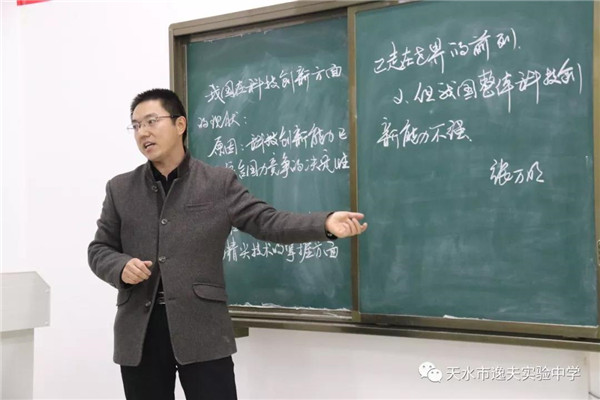 我国在科技创新方面
的现状:
原因:科技创新能力已
综合国力竞争的决定性
尖技术的掌握方面
已走在世界的前列.
2.但我国整体科技创
新能力不强.
张万明
天水市逸夫实验中学